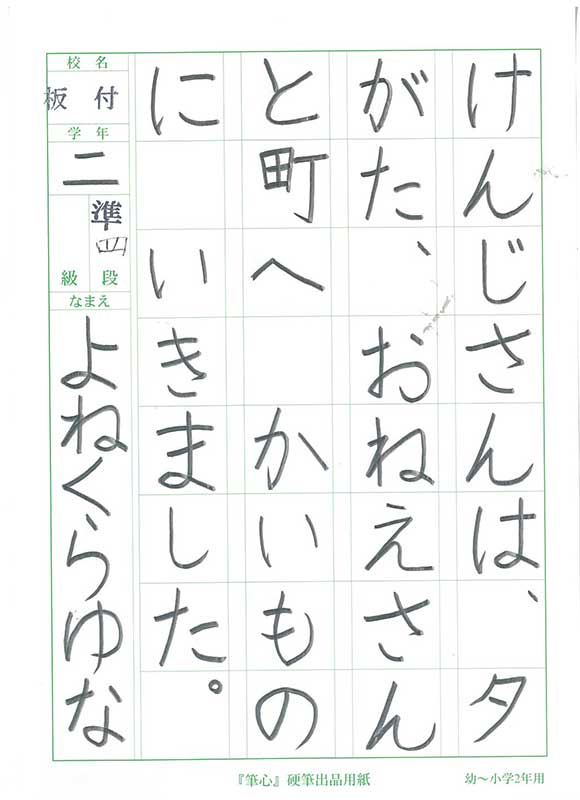 けんじさんは、 夕
がた、 おねえさん
と町へ かいもの
に いきました。
校名
板付
学年
二
準四
級 段
なまえ
よねくらゆな
『筆心』硬筆出品用紙
幼〜小学2年用